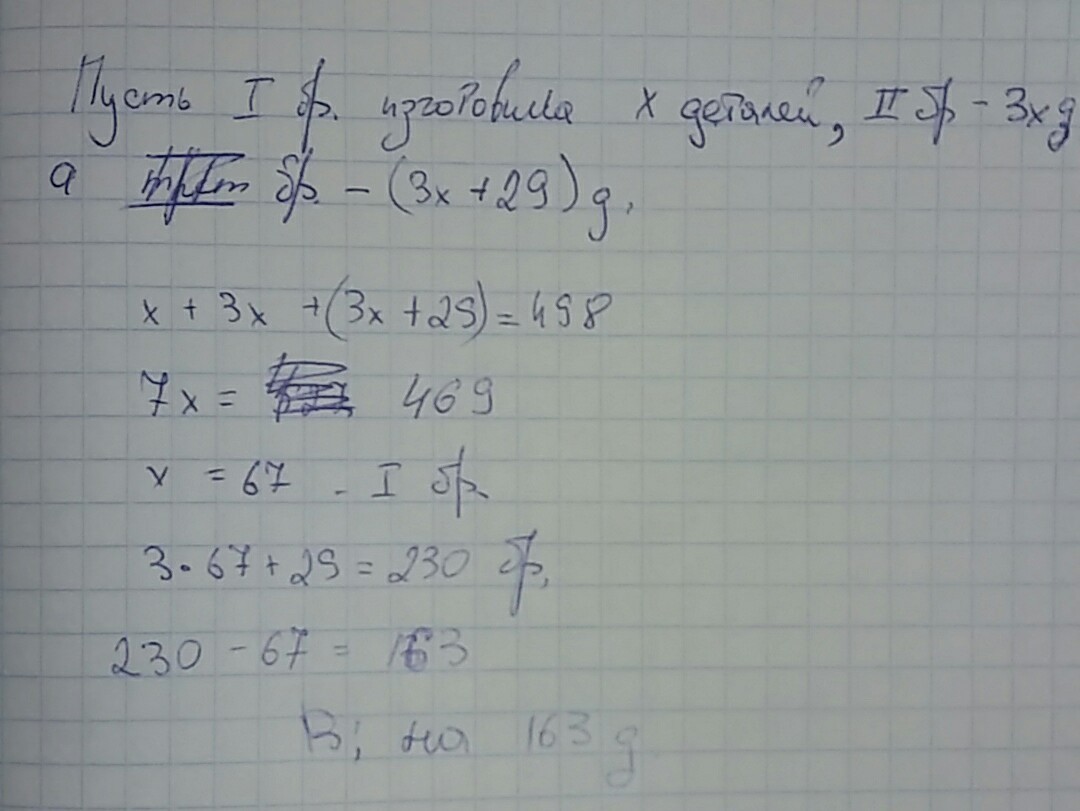 Пусть I бр. изготовила x деталей, II бр - 3x д
а бр. - (3x + 29) д.
x + 3x + (3x + 29) = 498
7x = 469
x = 67 - I бр.
3 · 67 + 29 = 230 бр.
230 - 67 = 163
В; на 163 д